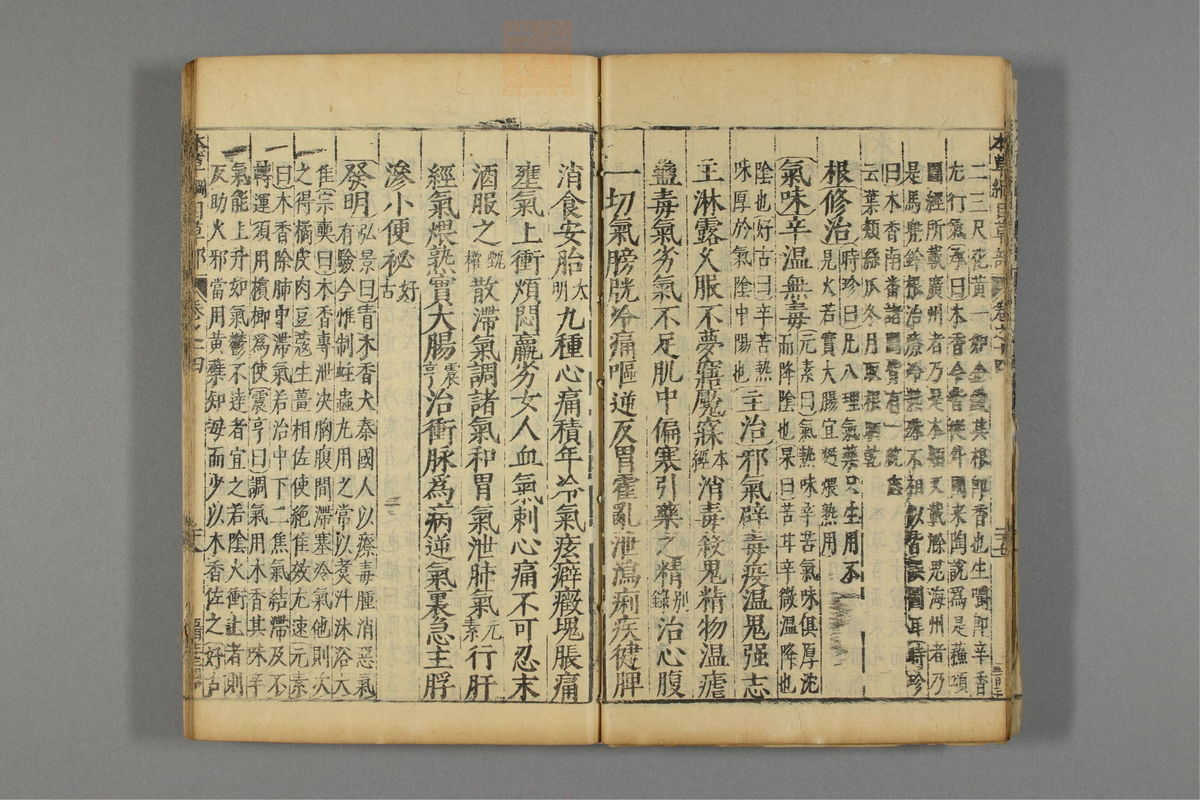 本草綱目草部 卷之十四
二三尺花黃一如金其根即香也生嚼即辛香
尤行氣承曰木香今皆從外國來陶說為是蘇頌
圖經所載廣州者乃是木類又載滁州海州者乃
是馬兜鈴根治療冷熱殊不相似皆誤圖耳時珍
曰木香南番諸國皆有一統志
云葉類絲瓜冬月取根晒乾
根修治時珍曰凡入理氣藥只生用不
見火若實大腸宜麪煨熟用
氣味辛溫無毒元素曰氣熱味辛苦氣味俱厚沈
而降陰也杲曰苦甘辛微溫降也
陰也好古曰辛苦熱
味厚於氣陰中陽也
主治邪氣辟毒疫溫鬼强志
主淋露久服不夢寤魘寐本經消毒殺鬼精物溫瘧
蠱毒氣劣氣不足肌中偏寒引藥之精別錄治心腹
一切氣膀胱冷痛嘔逆反胃霍亂泄瀉痢疾健脾
消食安胎大明九種心痛積年冷氣痃癖癥塊脹痛
壅氣上衝煩悶羸劣女人血氣刺心痛不可忍末
酒服之甄權散滯氣調諸氣和胃氣泄肺氣元素行肝
經氣煨熟實大腸震亨治衝脉為病逆氣裏急主脬
滲小便祕好古
發明弘景曰青木香大秦國人以療毒腫消惡氣
有驗今惟制蛀蟲丸用之常以煮汁沐浴大
佳宗奭曰木香專泄決胸腹間滯塞冷氣他則次
之得橘皮肉豆蔻生薑相佐使絕佳效尤速元素
曰木香除肺中滯氣若治中下二焦氣結滯及不
轉運須用檳榔為使震亨曰調氣用木香其味辛
氣能上升如氣鬱不達者宜之若陰火衝上者則
反助火邪當用黃蘗知母而少以木香佐之好古
本草綱目草部 卷之十四